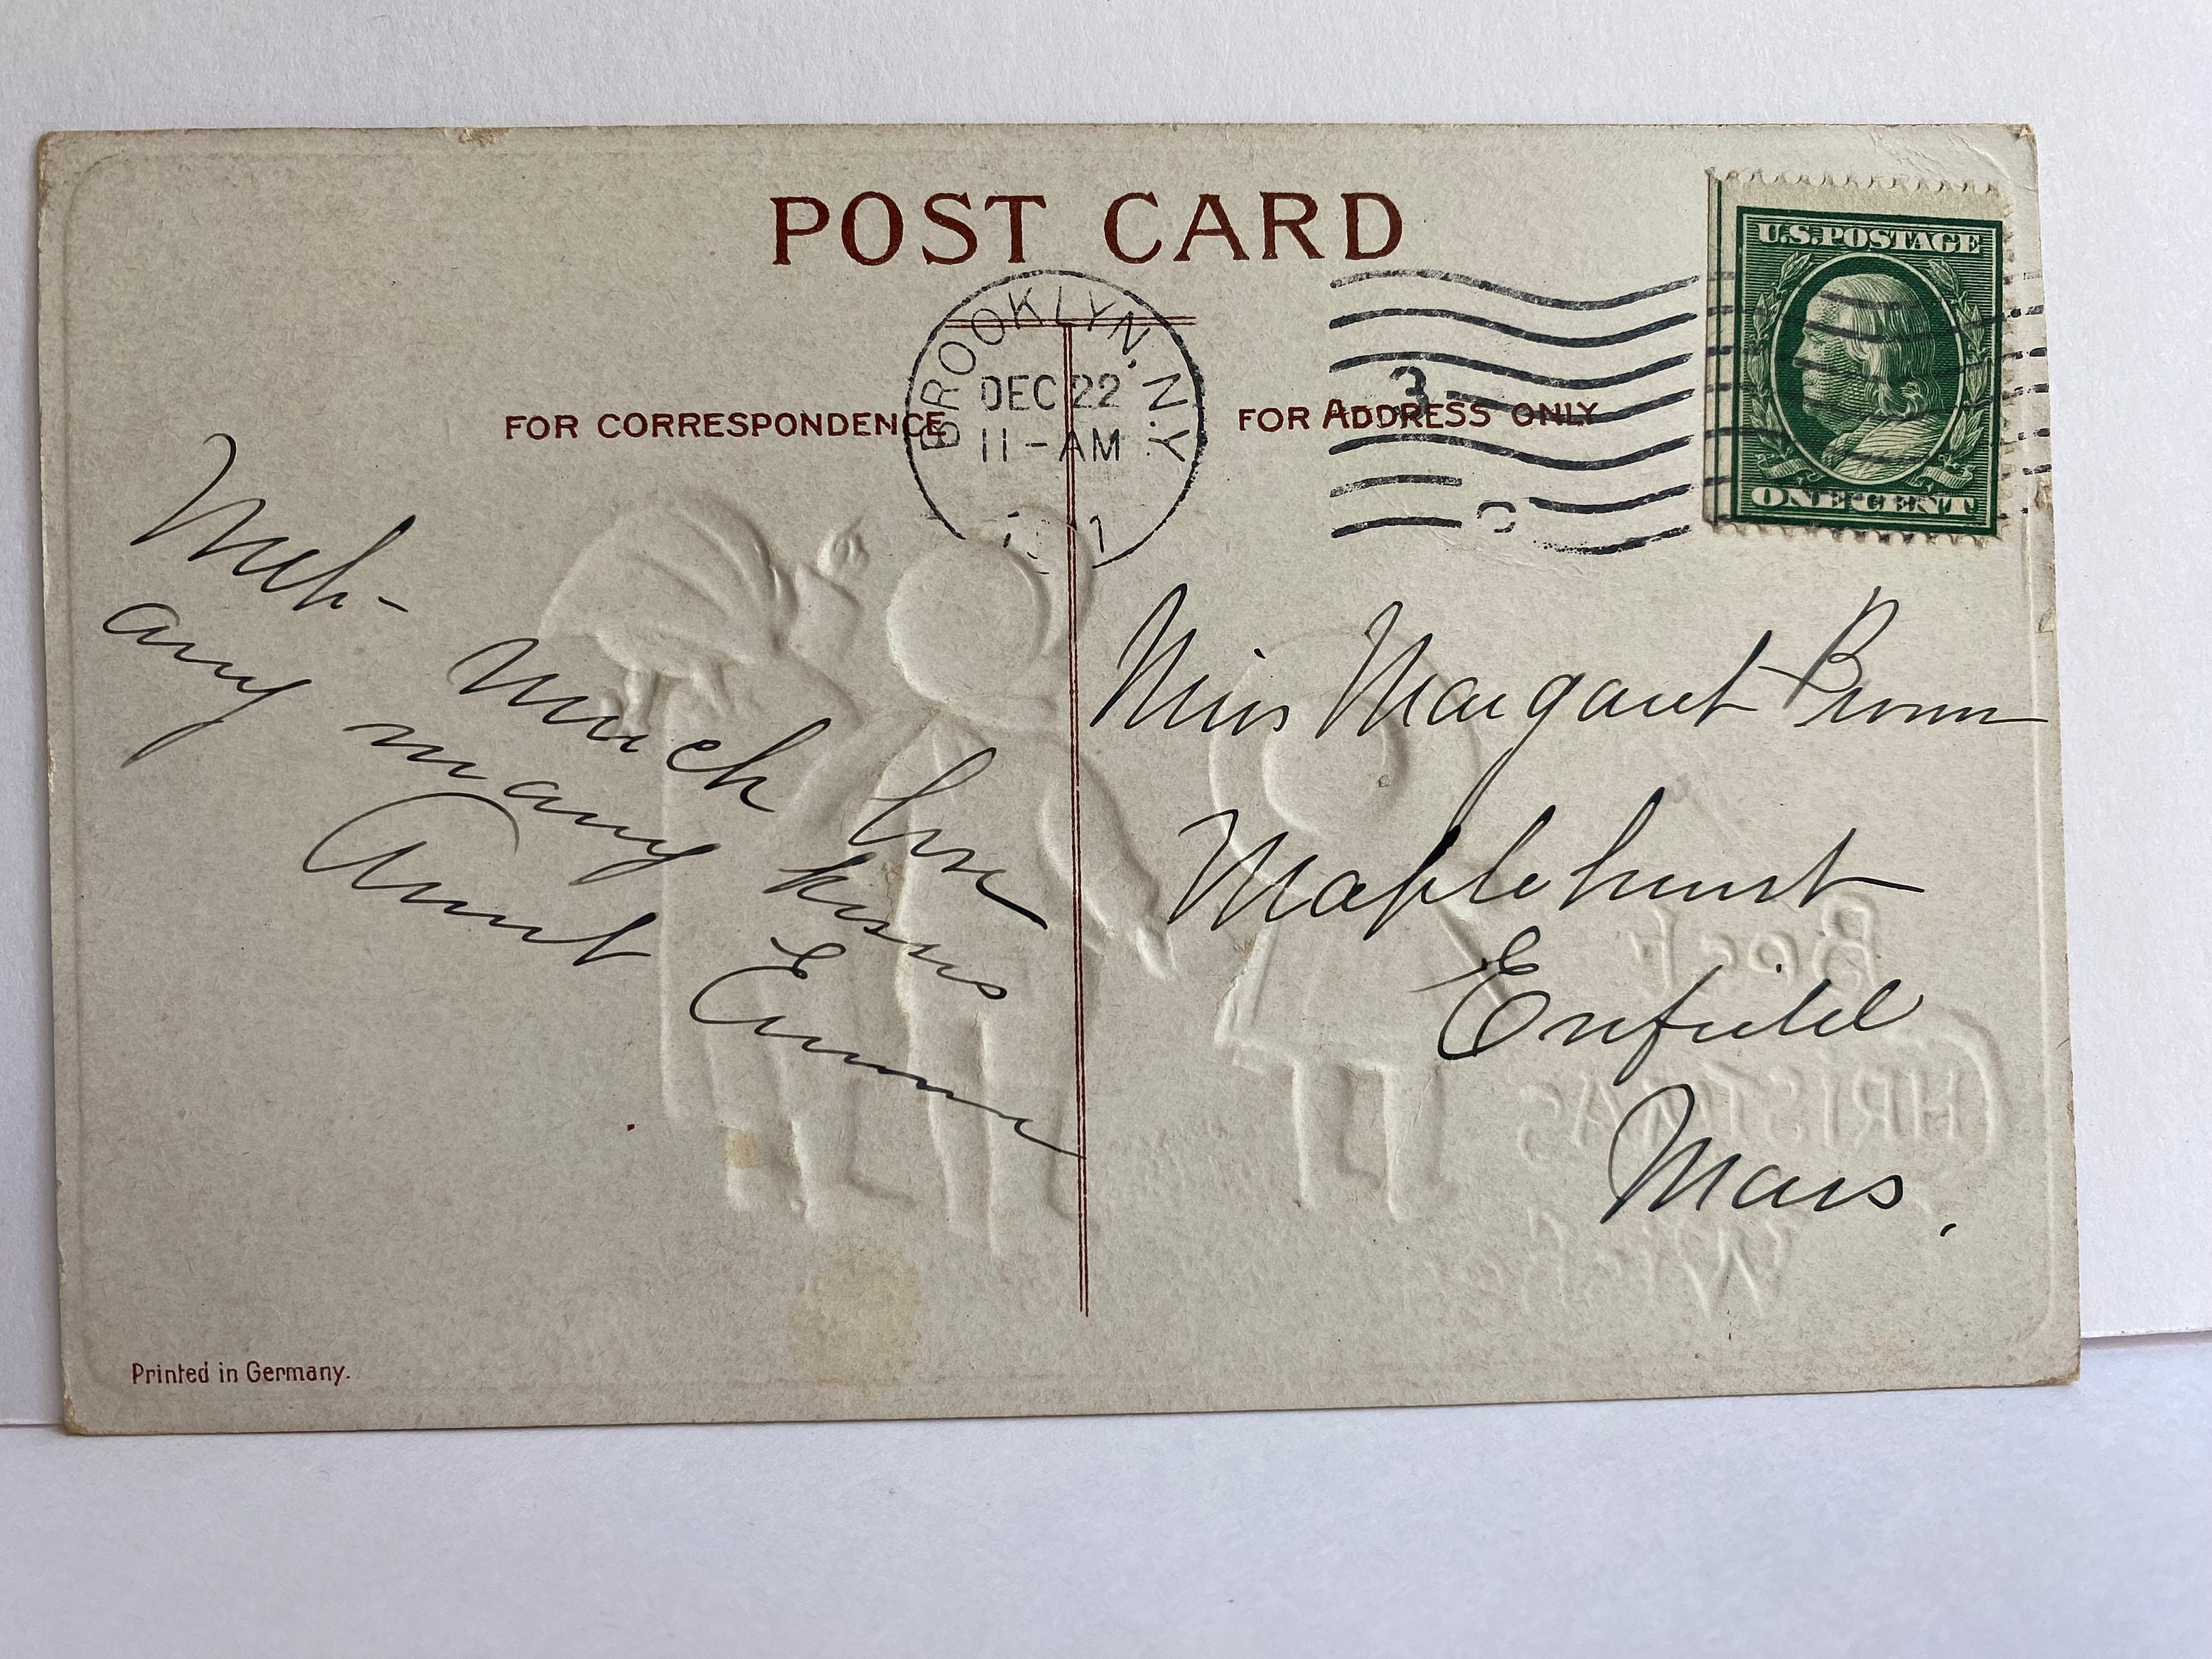 POST CARD
BROOKLYN, N.Y.
DEC 22
11-AM
3
C
U.S. POSTAGE
ONE CENT
FOR CORRESPONDENCE
FOR ADDRESS ONLY
With
much love
any many kisses
Aunt Emma
Miss Margaret
Maplehurst
Enfield
Mass.
Best
CHRISTMAS
Wishes
Printed in Germany.